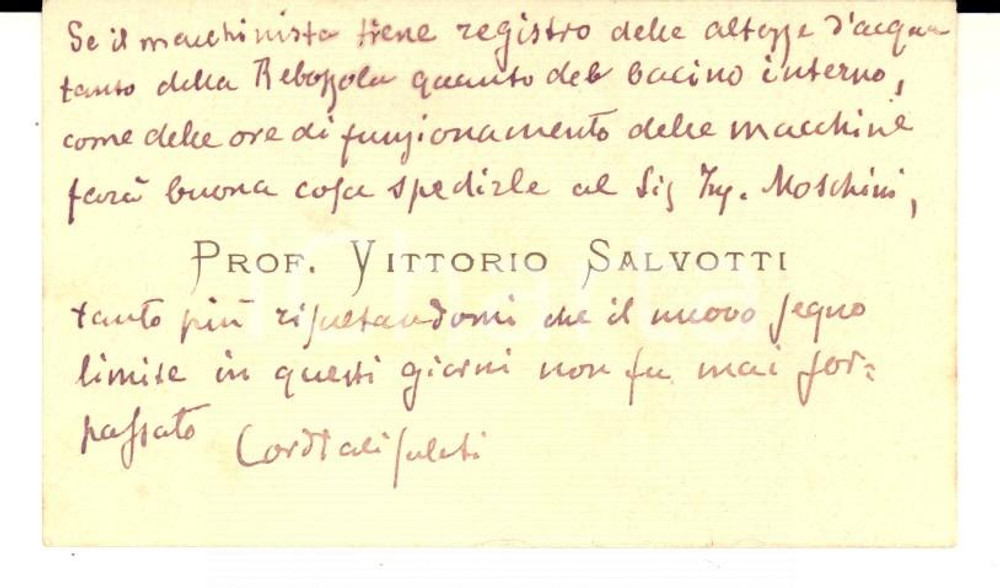 Se il macchinista tiene registro delle altezze d'acqua
tanto della Rebozzola quanto del bacino interno,
come delle ore di funzionamento delle macchine
farà buona cosa spedirle al Sig Ing. Moschini,
PROF. VITTORIO SALVOTTI
tanto più risultandomi che il nuovo segno
limite in questi giorni non fu mai sor=
passato Cordiali saluti